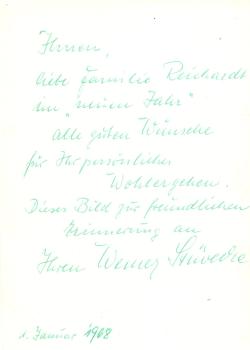 Ihnen,
liebe Familie Reichardt
im "neuen Jahr"
alle guten Wünsche
für Ihr persönliches
Wohlergehen.
Dieses Bild zur freundlichen
Erinnerung an
Ihren Werner
1. Januar 1968